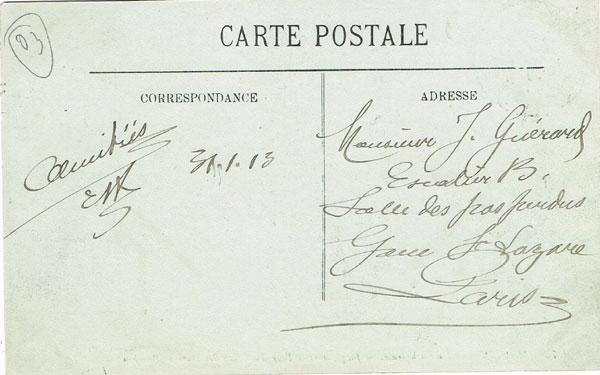 03
CARTE POSTALE
CORRESPONDANCE
ADRESSE
Amitiés
31.1.13
Monsieur J. Guérard
Escalier B.
Salle des pas perdus
Gare St Lazare
Paris